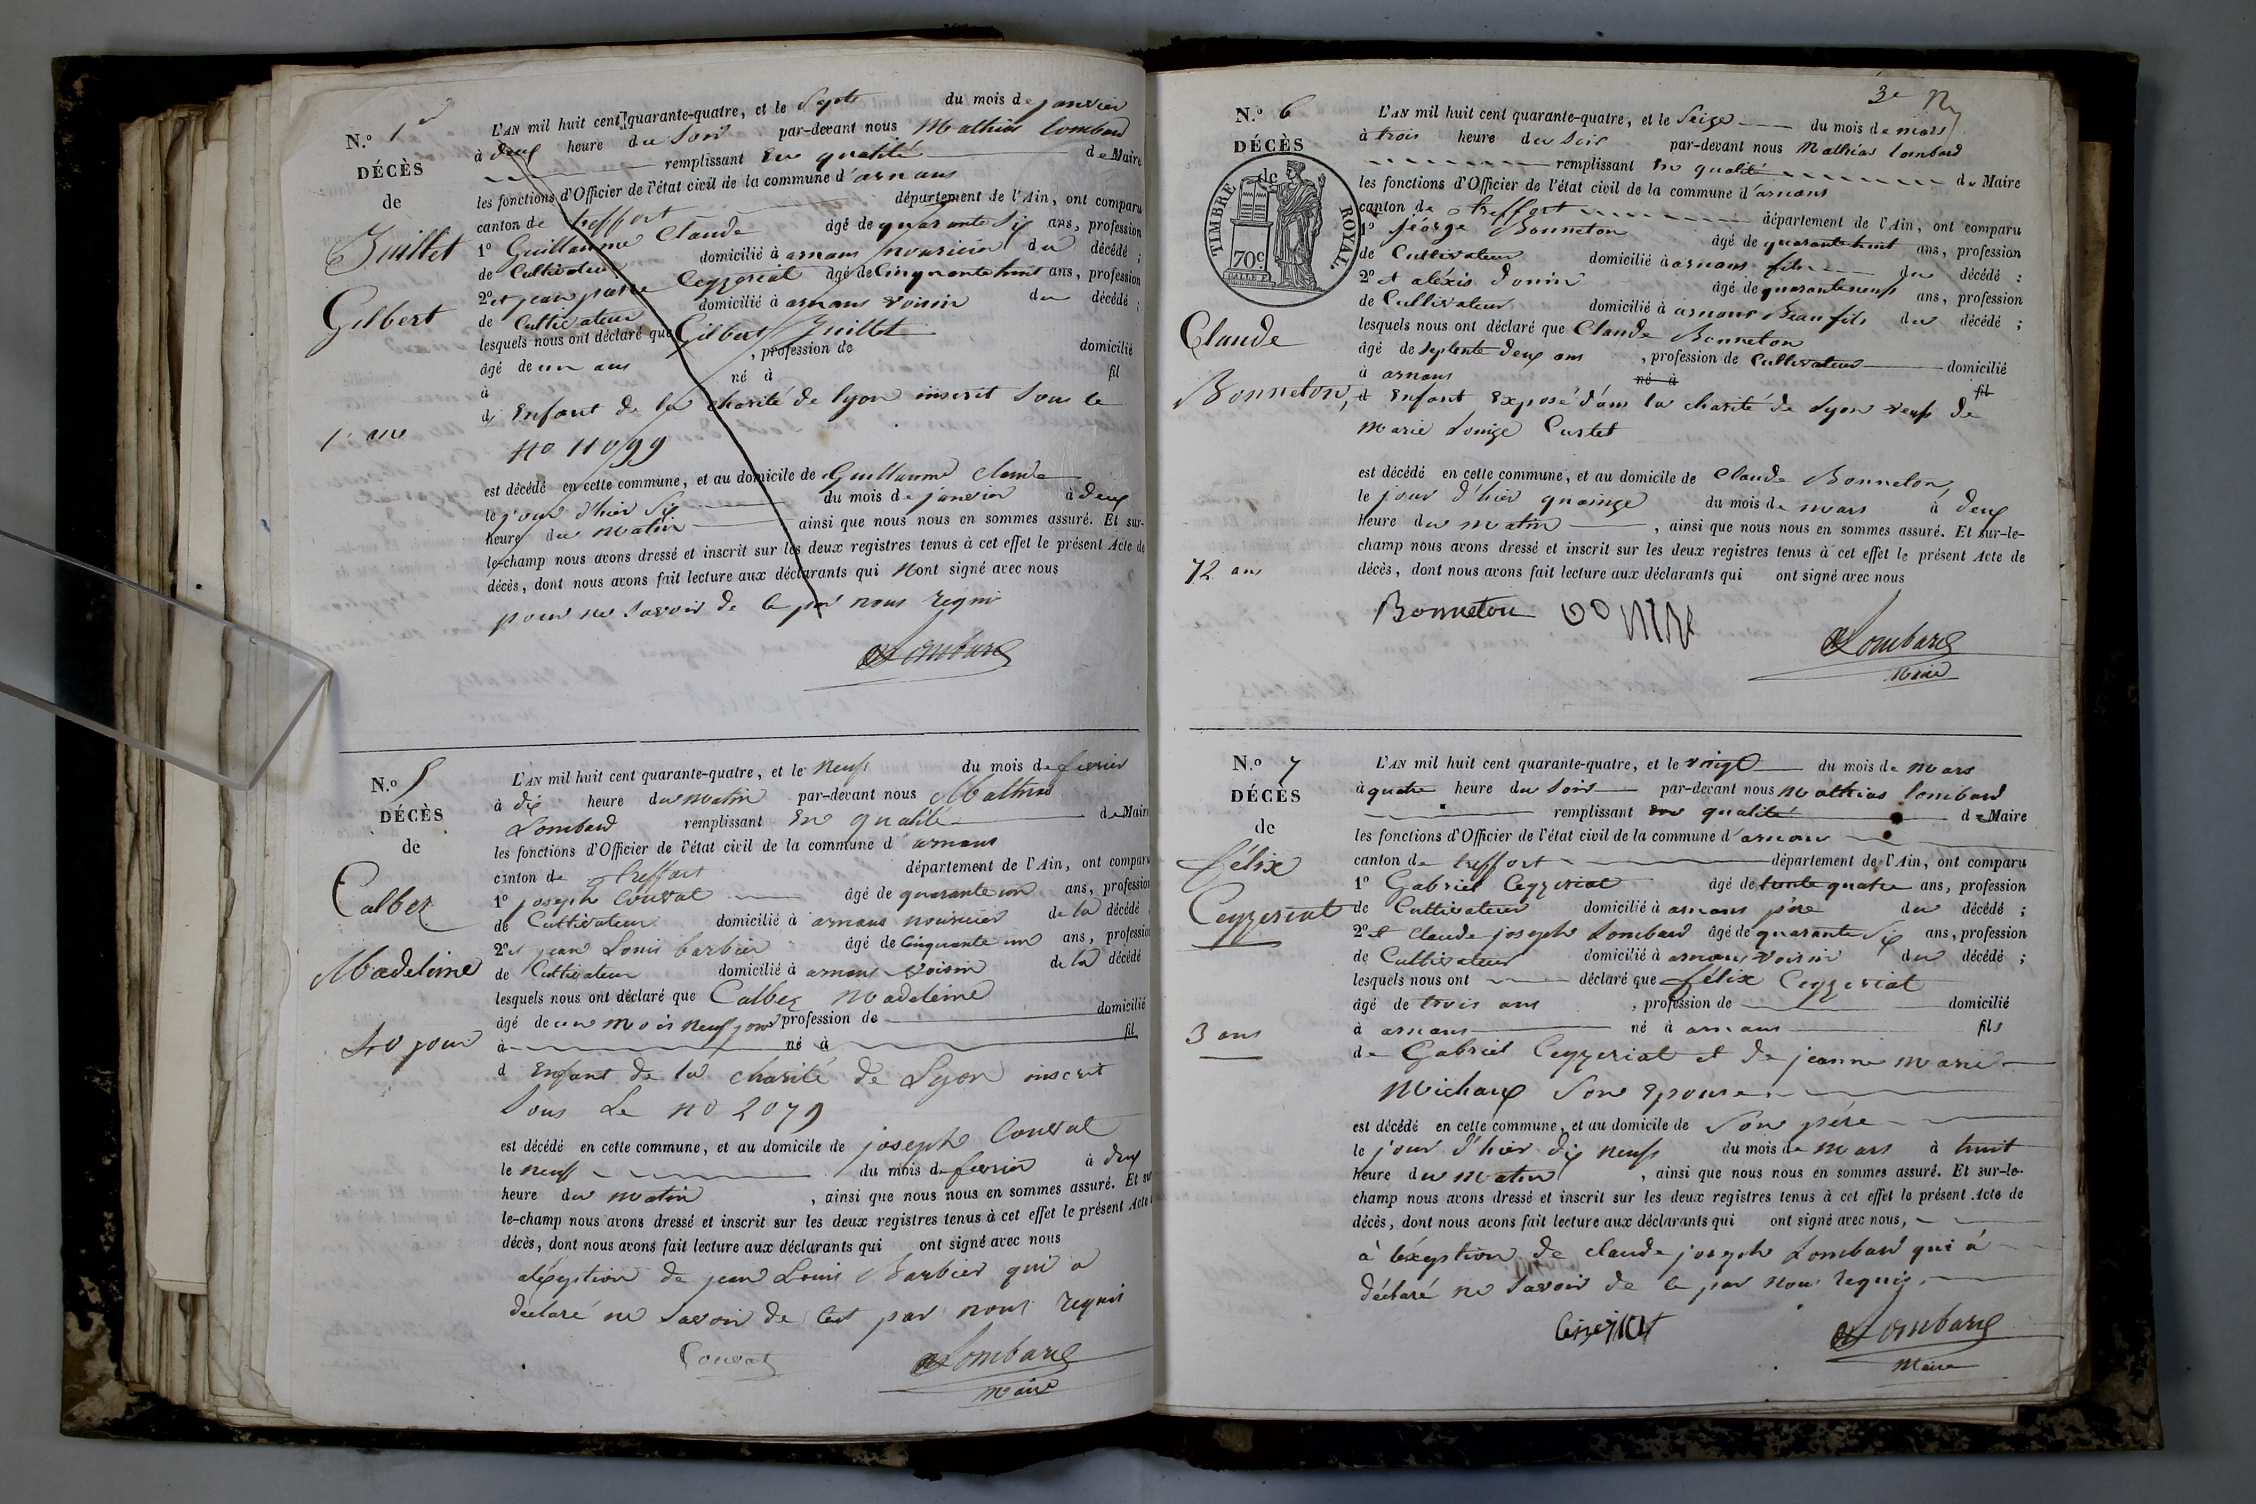 N.º 1er
DÉCÈS
de
Juillet
Gilbert
1 an
L'AN mil huit cent quarante-quatre, et le Septe du mois de janvier
à deux heure du Soir par-devant nous Mathias Lombard
remplissant En qualité de Maire
les fonctions d'Officier de l'état civil de la commune d'arnans
canton de treffort département de l'Ain, ont comparu
1º Guillaume Claude âgé de quarante Six ans, profession
de Cultivateur domicilié à arnans nouricier du décédé ;
2º et jean pierre Ceyzeriat âgé de Cinquante huit ans, profession
de Cultivateur domicilié à arnans voisin du décédé ;
lesquels nous ont déclaré que Gilbert Juillet
âgé de un ans , profession de domicilié
à né à fil
d Enfant de la charité de lyon inscrit Sous le
no 11099
est décédé en cette commune, et au domicile de Guillaume Claude
le jour d'hier Six du mois de janvier à deux
heure du matin ainsi que nous nous en sommes assuré. Et sur-
le-champ nous avons dressé et inscrit sur les deux registres tenus à cet effet le présent Acte de
décès, dont nous avons fait lecture aux déclarants qui Nont signé avec nous
pour ne Savoir de ce par nous requis
Lombard
N.º 5
DÉCÈS
de
Calbez
Madeleine
40 jour
L'AN mil huit cent quarante-quatre, et le Neuf du mois de fevrier
à dix heure du matin par-devant nous Mathias
Lombard remplissant En qualité de Maire
les fonctions d'Officier de l'état civil de la commune d'arnans
canton de treffort département de l'Ain, ont comparu
1º joseph Couvat âgé de quarante un ans, profession
de Cultivateur domicilié à arnans nouricier de la décédé
2º et jean Louis barbier âgé de Cinquante un ans, profession
de Cultivateur domicilié à arnans voisin de la décédé
lesquels nous ont déclaré que Calbez Madeleine
âgé de un mois neuf jour profession de domicilié
à né à fil
d Enfant de la charité de Lyon inscrit
Sous Le no 2079
est décédé en cette commune, et au domicile de joseph Couvat
le neuf du mois de fevrier à deux
heure du matin , ainsi que nous nous en sommes assuré. Et sur-
le-champ nous avons dressé et inscrit sur les deux registres tenus à cet effet le présent Acte
décès, dont nous avons fait lecture aux déclarants qui ont signé avec nous
aléxeption de jean Louis Barbier qui a
declaré ne Savoir de Cest par nous requis
Couvat Lombard
maire
3e
N.º 6
DÉCÈS
de
TIMBRE ROYAL.
70c
Claude
Bonneton,
72 ans
L'AN mil huit cent quarante-quatre, et le Seize du mois de mars
à trois heure du Soir par-devant nous Mathias Lombard
remplissant En qualité de Maire
les fonctions d'Officier de l'état civil de la commune d'arnans
canton de treffort département de l'Ain, ont comparu
1º jéorge Bonneton âgé de quarante huit ans, profession
de Cultivateur domicilié à arnans fils du décédé :
2º et aléxis donin âgé de quarante neuf ans, profession
de Cultivateur domicilié à arnans Beau fils du décédé ;
lesquels nous ont déclaré que Claude Bonneton
âgé de Septente deux ans , profession de Cultivateur domicilié
à arnans né à fil
d Enfant Exposé dans la charité de Lyon veuf de
Marie Louize Curtet
est décédé en cette commune, et au domicile de Claude Bonneton,
le jour d'hier quainze du mois de mars à deux
heure du matin , ainsi que nous nous en sommes assuré. Et sur-le-
champ nous avons dressé et inscrit sur les deux registres tenus à cet effet le présent Acte de
décès, dont nous avons fait lecture aux déclarants qui ont signé avec nous
Bonneton Lombard
Maire
N.º 7
DÉCÈS
de
félix
Ceyzeriat
3 ans
L'AN mil huit cent quarante-quatre, et le vingt du mois de Mars
à quatre heure du Soir par-devant nous Mathias Lombard
remplissant en qualité de Maire
les fonctions d'Officier de l'état civil de la commune d'arnans
canton de treffort département de l'Ain, ont comparu
1º Gabriel Ceyzeriat âgé de trente quatre ans, profession
de Cultivateur domicilié à arnans père du décédé ;
2º et Claude joseph Lombard âgé de quarante Six ans, profession
de Cultivateur domicilié à arnans voisin du décédé ;
lesquels nous ont déclaré que félix Ceyzeriat
âgé de trois ans , profession de domicilié
à arnans né à arnans fils
de Gabriel Ceyzeriat et de jeanne Marie
Michaux Son Epouse
est décédé en cette commune, et au domicile de Son père
le jour d'hier dix neuf du mois de Mars à huit
heure du Matin , ainsi que nous nous en sommes assuré. Et sur-le-
champ nous avons dressé et inscrit sur les deux registres tenus à cet effet le présent Acte de
décès, dont nous avons fait lecture aux déclarants qui ont signé avec nous,
à léxeption de claude joseph Lombard qui á
déclaré ne Savoir de ce par nous requis
Ceyzeriat Lombard
Maire